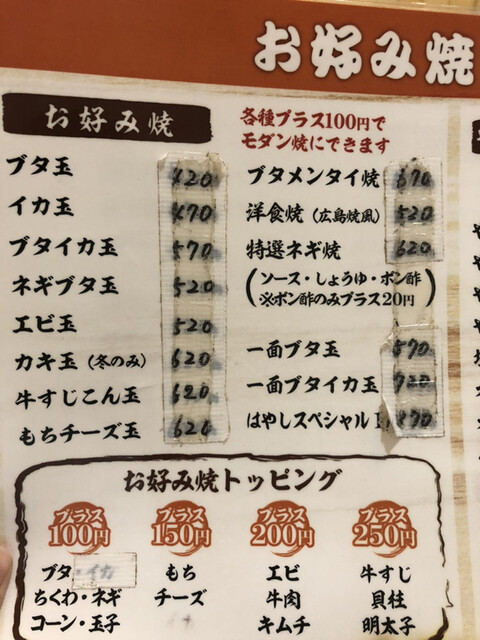 お好み焼
お好み焼
ブタ玉 420
イカ玉 470
ブタイカ玉 570
ネギブタ玉 520
エビ玉 520
カキ玉 (冬のみ) 620
牛すじこん玉 620
もちチーズ玉 620
各種プラス100円で
モダン焼にできます
ブタメンタイ焼 670
洋食焼 (広島焼風) 520
特選ネギ焼 620
(ソース・しょうゆ・ポン酢
※ポン酢のみプラス20円)
一面ブタ玉 570
一面ブタイカ玉 720
はやしスペシャル 870
お好み焼トッピング
プラス
100円
ブタ・イカ
ちくわ・ネギ
コーン・玉子
プラス
150円
もち
チーズ
プラス
200円
エビ
牛肉
キムチ
プラス
250円
牛すじ
貝柱
明太子